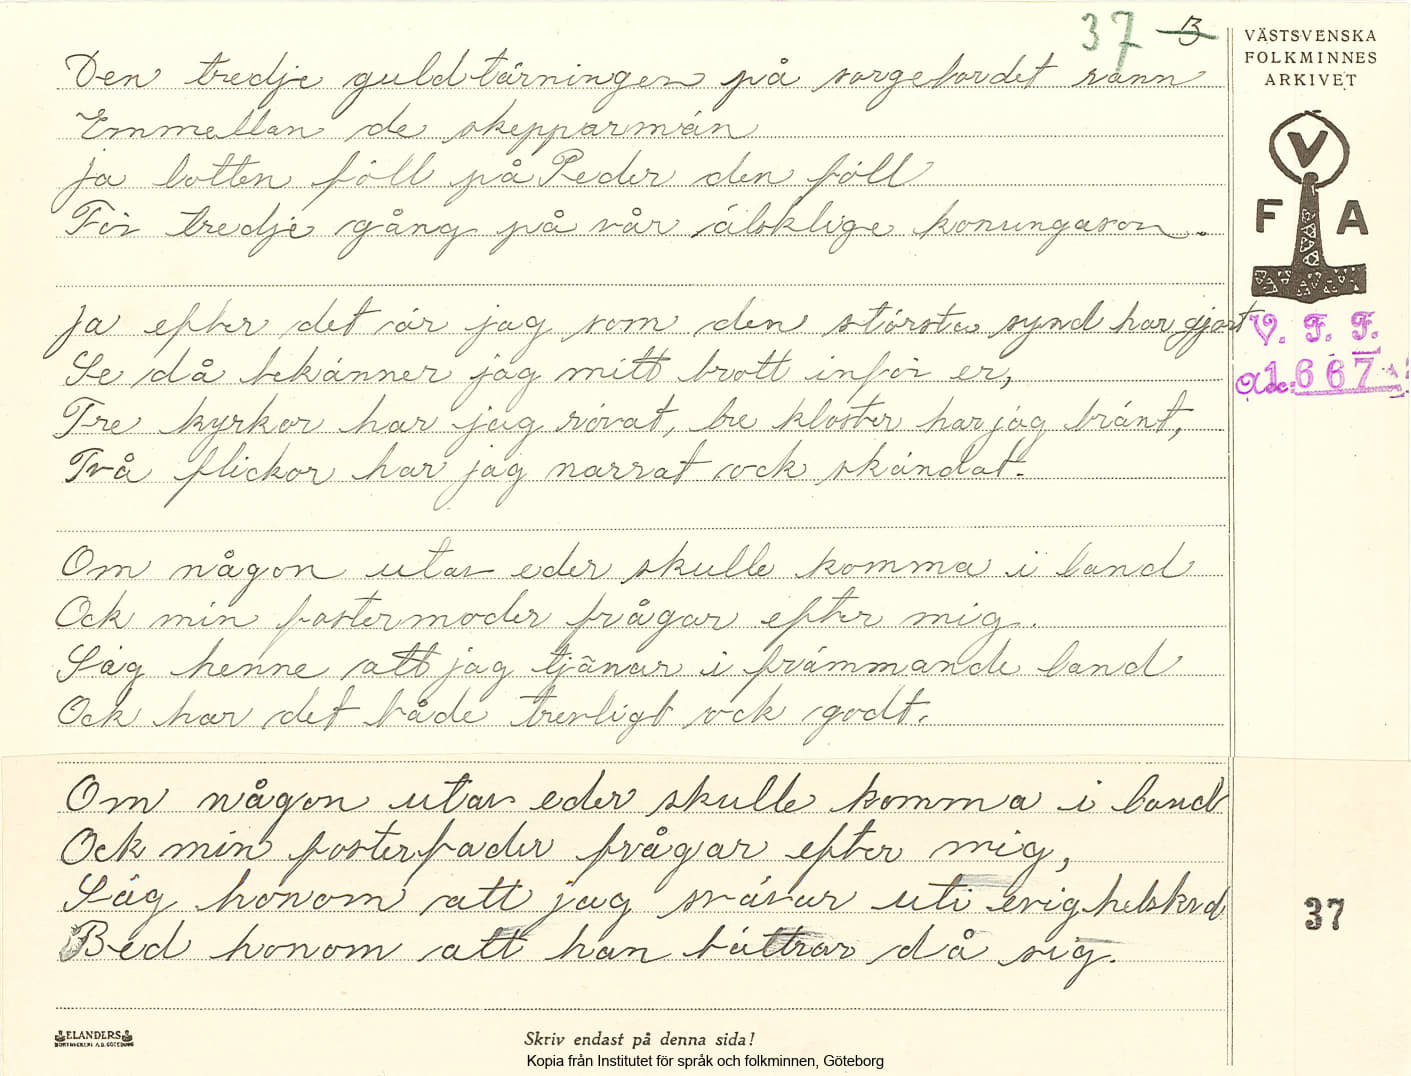 37 13
VÄSTSVENSKA
FOLKMINNES
ARKIVET
V
F A
V. F. F.
Acc: 1667
Den tredje guldtärningen på sorgebordet rann
Emmellan de skepparmän
Ja lotten föll på Peder den föll
För tredje gång på vår älsklige konungason.
Ja efter det är jag som den största synd har gjort
Se då bekänner jag mitt brott inför er,
Tre kyrkor har jag rövat, tre kloster har jag bränt,
Två flickor har jag narrat ock skändat.
Om någon utav eder skulle komma i land
Ock min fostermoder frågar efter mig.
Säg henne att jag tjänar i främmande land
Ock har det både trevligt ock godt.
Om någon utav eder skulle komma i land
Ock min fosterfader frågar efter mig,
Säg honom att jag svävar uti evighetskval
Bed honom att han bättrar då sig.
37
ELANDERS
BOKTRYCKERI A.B. GÖTEBORG
Skriv endast på denna sida!
Kopia från Institutet för språk och folkminnen, Göteborg